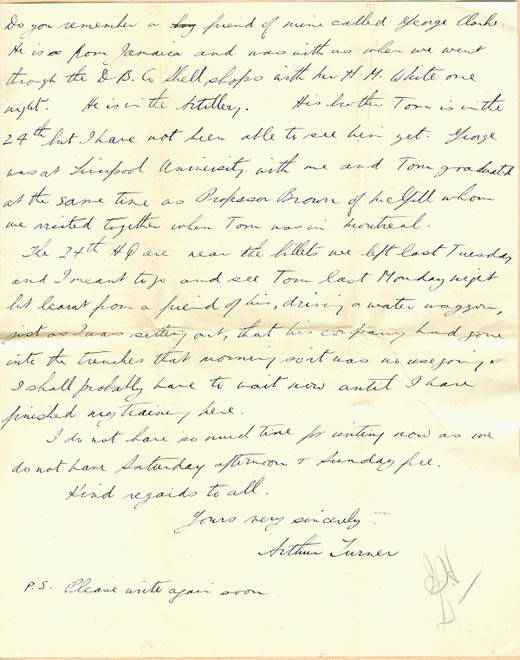 Do you remember a friend of mine called George Clarke.
He is from Jamaica and was with us when we went
through the D.B. Co Shell, shops with Mr H. M. White one
night. He is in the Artillery. His brother Tom is in the
24th but I have not been able to see him yet. George
was at Liverpool University with me and Tom graduated
at the same time as Professor Brown of McGill whom
we visited together when Tom was in Montreal.
The 24th HQ are near the billets we left last Tuesday
and I meant to go and see Tom last Monday night
but learnt from a friend of his, driving a water waggon,
just as I was setting out, that his company had gone
into the trenches that morning so it was no use going.
I shall probably have to wait now until I have
finished my training here.
I do not have so much time for writing now as we
do not have Saturday afternoon & Sunday free.
Kind regards to all.
Yours very sincerely
Arthur Turner
P.S. Please write again soon